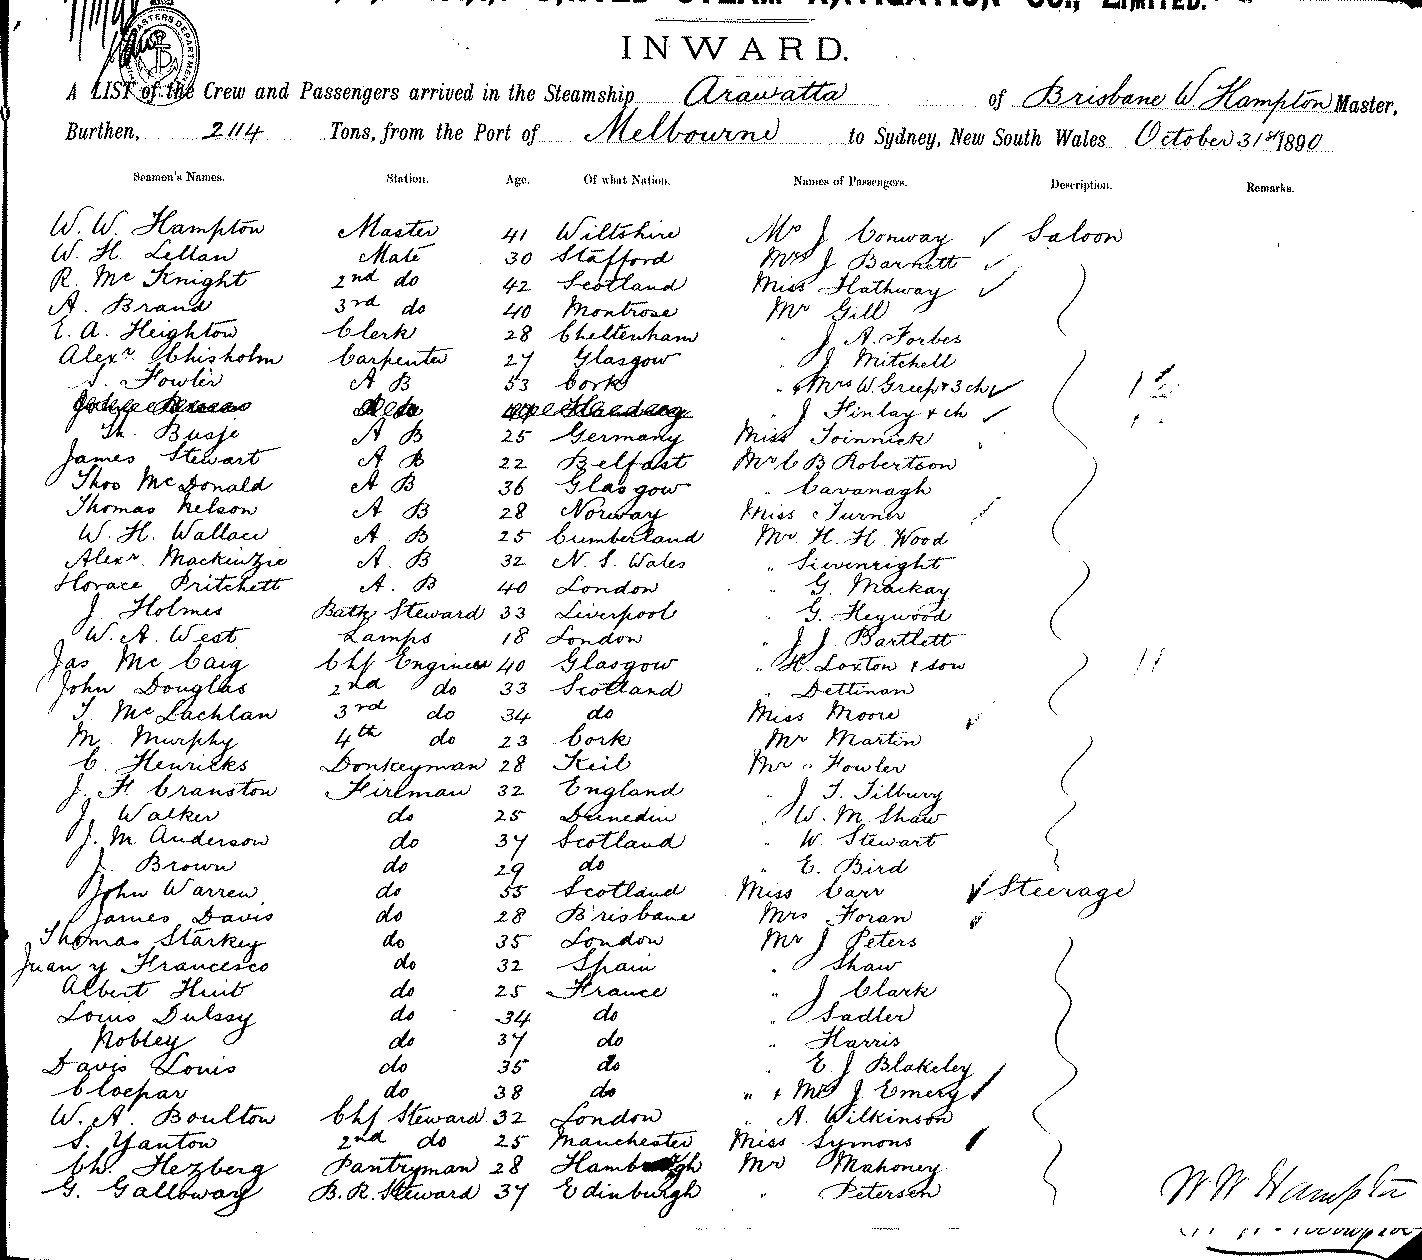 UNITED STEAM NAVIGATION CO., LIMITED.
INWARD.
A LIST of the Crew and Passengers arrived in the Steamship Arawatta of Brisbane W Hampton Master,
Burthen, 2114 Tons, from the Port of Melbourne to Sydney, New South Wales October 31st 1890
Seamen's Names. Station. Age. Of what Nation. Names of Passengers. Description. Remarks.
W. W. Hampton Master 41 Wiltshire Mrs J Conway ✓ Saloon
W. H. Lellan Mate 30 Stafford Mrs J Barnett ✓
R. McKnight 2nd do 42 Scotland Miss Hathway ✓
A. Brand 3rd do 40 Montrose Mr Gill
E. A. Heighton Clerk 28 Cheltenham " J A. Forbes
Alexr Chisholm Carpenter 27 Glasgow J Mitchell
S. Fowler A B 53 Cork " Mrs W. Greep + 3 ch ✓
" J Finlay + ch ✓
Th. Busje A B 25 Germany Miss Toinnick
James Stewart A B 22 Belfast Mr C B Robertson
Thos McDonald A B 36 Glasgow " Cavanagh
Thomas Nelson A B 28 Norway Miss Turner
W. H. Wallace A B 25 Cumberland Mr H. H. Wood
Alexr Mackinzie A B 32 N. S. Wales " Sievenright
Horace Pritchett A. B 40 London " G. Mackay
J. Holmes Bath Steward 33 Liverpool " G. Heywood
W. A. West Lamps 18 London " J. J. Bartlett
Jas McCaig Chf Engineer 40 Glasgow " H. Loxton + son
John Douglas 2nd do 33 Scotland " Dettman
T. McLachlan 3rd do 34 do Miss Moore
M. Murphy 4th do 23 Cork Mr Martin
C. Henricks Donkeyman 28 Keil Mr " Fowler
J. F Cranston Fireman 32 England " J. T. Tilbury
J. Walker do 25 Dunedin " W. M. Shaw
J. M Anderson do 37 Scotland " W. Stewart
J. Brown do 29 do " E. Bird
John Warren do 55 Scotland Miss Carr ✓ Steerage
James Davis do 28 Brisbane Mrs Foran
Thomas Starkey do 35 London Mr J Peters
Juan y Francesco do 32 Spain " Shaw
Albert Huib do 25 France " J Clark
Louis Dulssy do 34 do " Sadler
Nobley do 37 do " Harris
Davis Louis do 35 do " E. J Blakeley
Cloepar do 38 do " + Mrs J. Emery
W. A. Boulton Chf Steward 32 London " A. Wilkinson
S. Yanton 2nd do 25 Manchester Miss Symons
Ch. Hezberg Pantryman 28 Mr Mahoney
G. Galloway B. R. Steward 37 Edinburgh " Petersen
W W Hampton